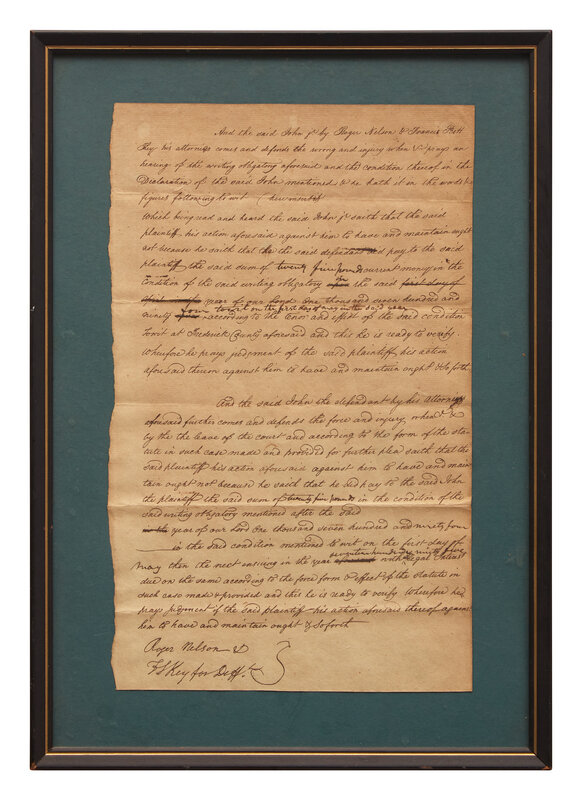 And the said John Jr by Roger Nelson & Francis Scott
Key his attornies comes and defends the wrong and injury when &c prays an
hearing of the writing obligatory aforesaid and the condition thereof in the
Declaration of the said John mentioned & he hath it in the words &
figures following to wit (here insert)
Which being read and heard the said John Jr saith that the said
plaintiff his action aforesaid against him to have and maintain ought
not because he saith that the said defendant did pay to the said
plaintiff the said sum of twenty five pounds current money in the
condition of the said writing obligatory upon the said first day of
year of our Lord One thousand seven hundred and
four to wit on the first day of may in the said year
ninety according to the tenor and effect of the said condition
Towit at Frederick County aforesaid and this he is ready to verify
Wherefore he prays judgment if the said plaintiff his action
aforesaid thereon against him to have and maintain ought &c so forth
And the said John the defendant by his attorneys
aforesaid further comes and defends the force and injury when &c &
by the the leave of the court and according to the form of the sta-
tute in such case made and provided for further plea saith that the
said plaintiff his action aforesaid against him to have and main
tain ought not because he saith that he did pay to the said John
the plaintiff the said sum of twenty five pounds in the condition of the
said writing obligatory mentioned after the said
year of our Lord One thousand seven hundred and ninety four
in the said condition mentioned to wit on the first day of
seventeen hundred & ninety five
may then the next ensuing in the year with legal Interest
due on the same according to the force form & effect of the statute in
such case made & provided and this he is ready to verify Wherefore he
prays judgment if the said plaintiff his action aforesaid thereof against
him to have and maintain ought & so forth
Roger Nelson &
F S Key for Deft.